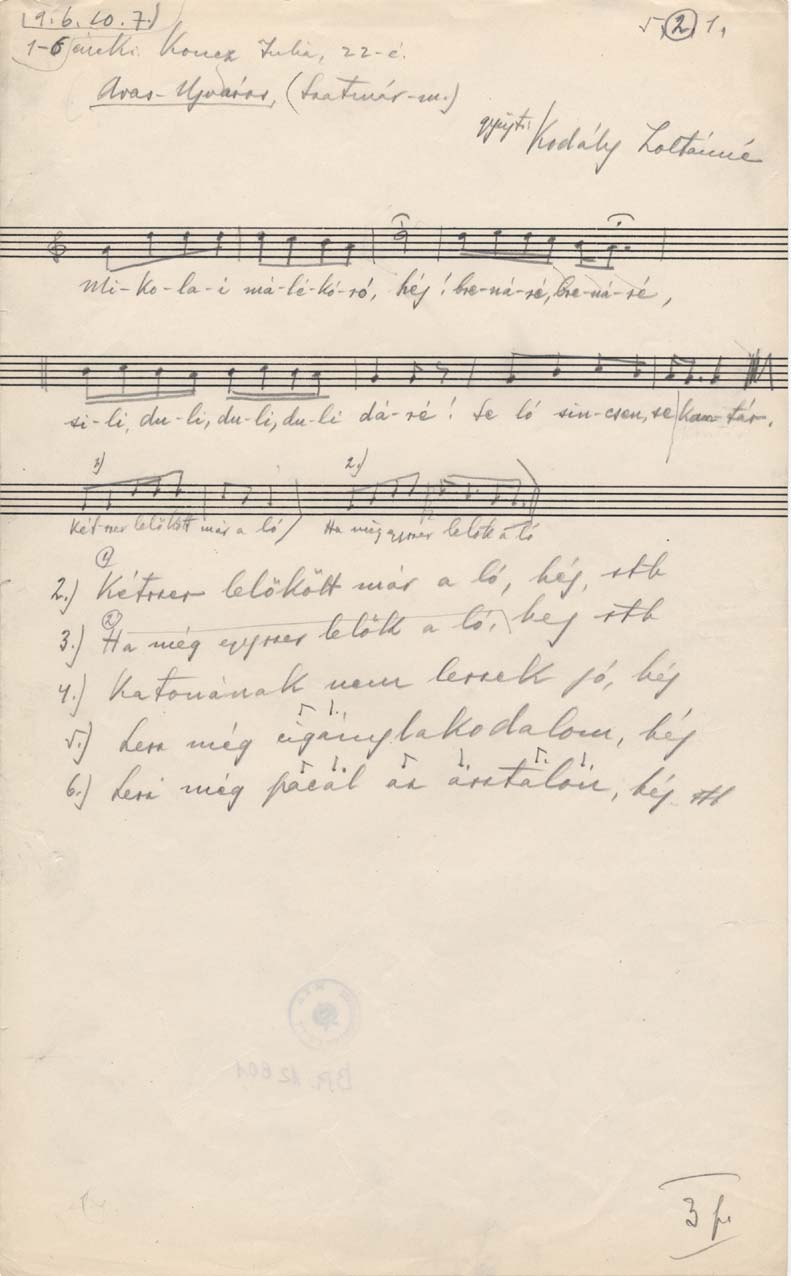 (9. 6. 10. 7.)
5, 2, 1,
1-6 énekli Koncz Julia, 22-é.
Avas-Ujváros, (Szatmár-m.)
gyüjti Kodály Zoltánné
Mi-ko-la-i má-lé-kó-ró, héj! bre-ná-ré, bre-ná-ré,
si-li, du-li, du-li, du-li dá-ré! Se ló sin-csen, se kan-tár.
1) 2.)
Kétszer lelökött már a ló Ha még egyszer lelök a ló
2.) Kétszer lelökött már a ló, héj, stb
3.) Ha még egyszer lelök a ló, hej stb
4.) Katonának nem leszek jó, héj
5.) Lesz még cigánylakodalom, héj
6.) Lesz még pacal az asztalon, héj stb
BR. 12601
3 f.